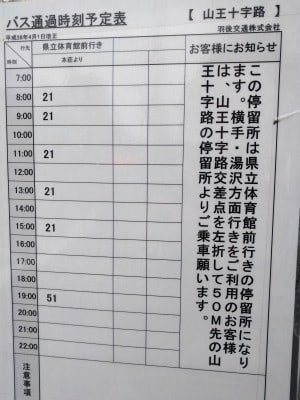 バス通過時刻予定表
【 山王十字路 】
平成26年4月1日改正
羽後交通株式会社
行先
時刻
県立体育館前行き
本荘より
お客様にお知らせ
7:00
8:00 21
9:00 21
10:00
11:00 21
12:00
13:00 21
14:00
15:00 21
16:00
17:00
18:00
19:00 51
20:00
21:00
22:00
注意事項
この停留所は県立体育館前行きの停留所になり
ます。横手・湯沢方面行きをご利用のお客様
は、山王十字路交差点を左折して50M先の山
王十字路の停留所よりご乗車願います。